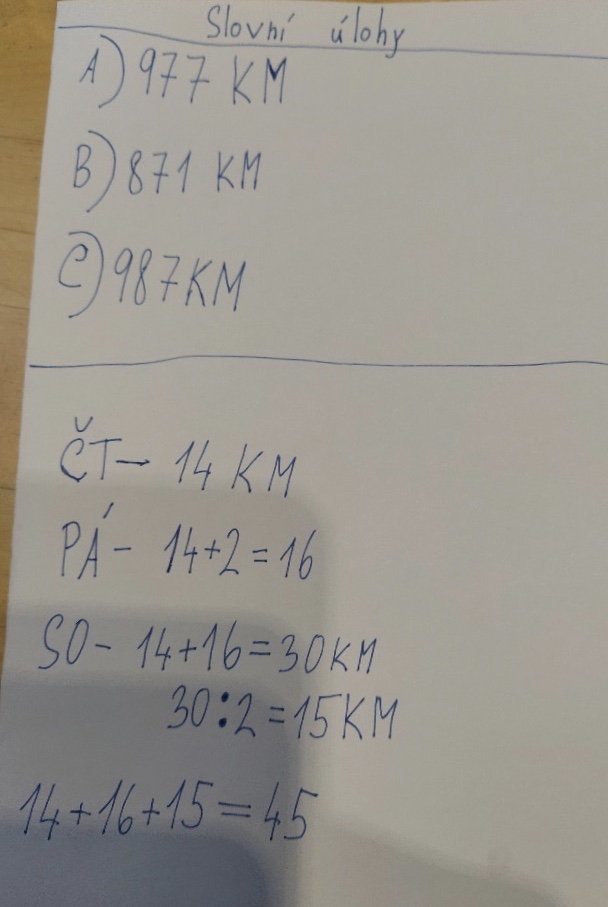 Slovní úlohy
A) 977 KM
B) 871 KM
C) 987 KM
ČT- 14 KM
PÁ- 14+2=16
SO- 14+16=30KM
30:2=15KM
14+16+15=45